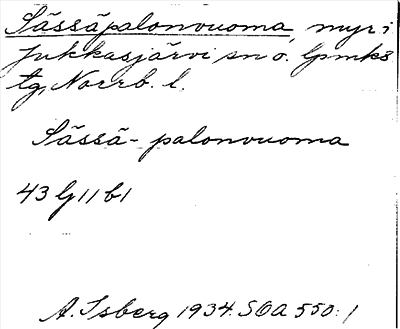 Sässäpalonvuoma, myr i
Jukkasjärvi sn o. Lpmks
tg, Norrb. l.
Sässä-palonvuoma
43 G 11 b1
A. Isberg 1934. SOA 550: 1